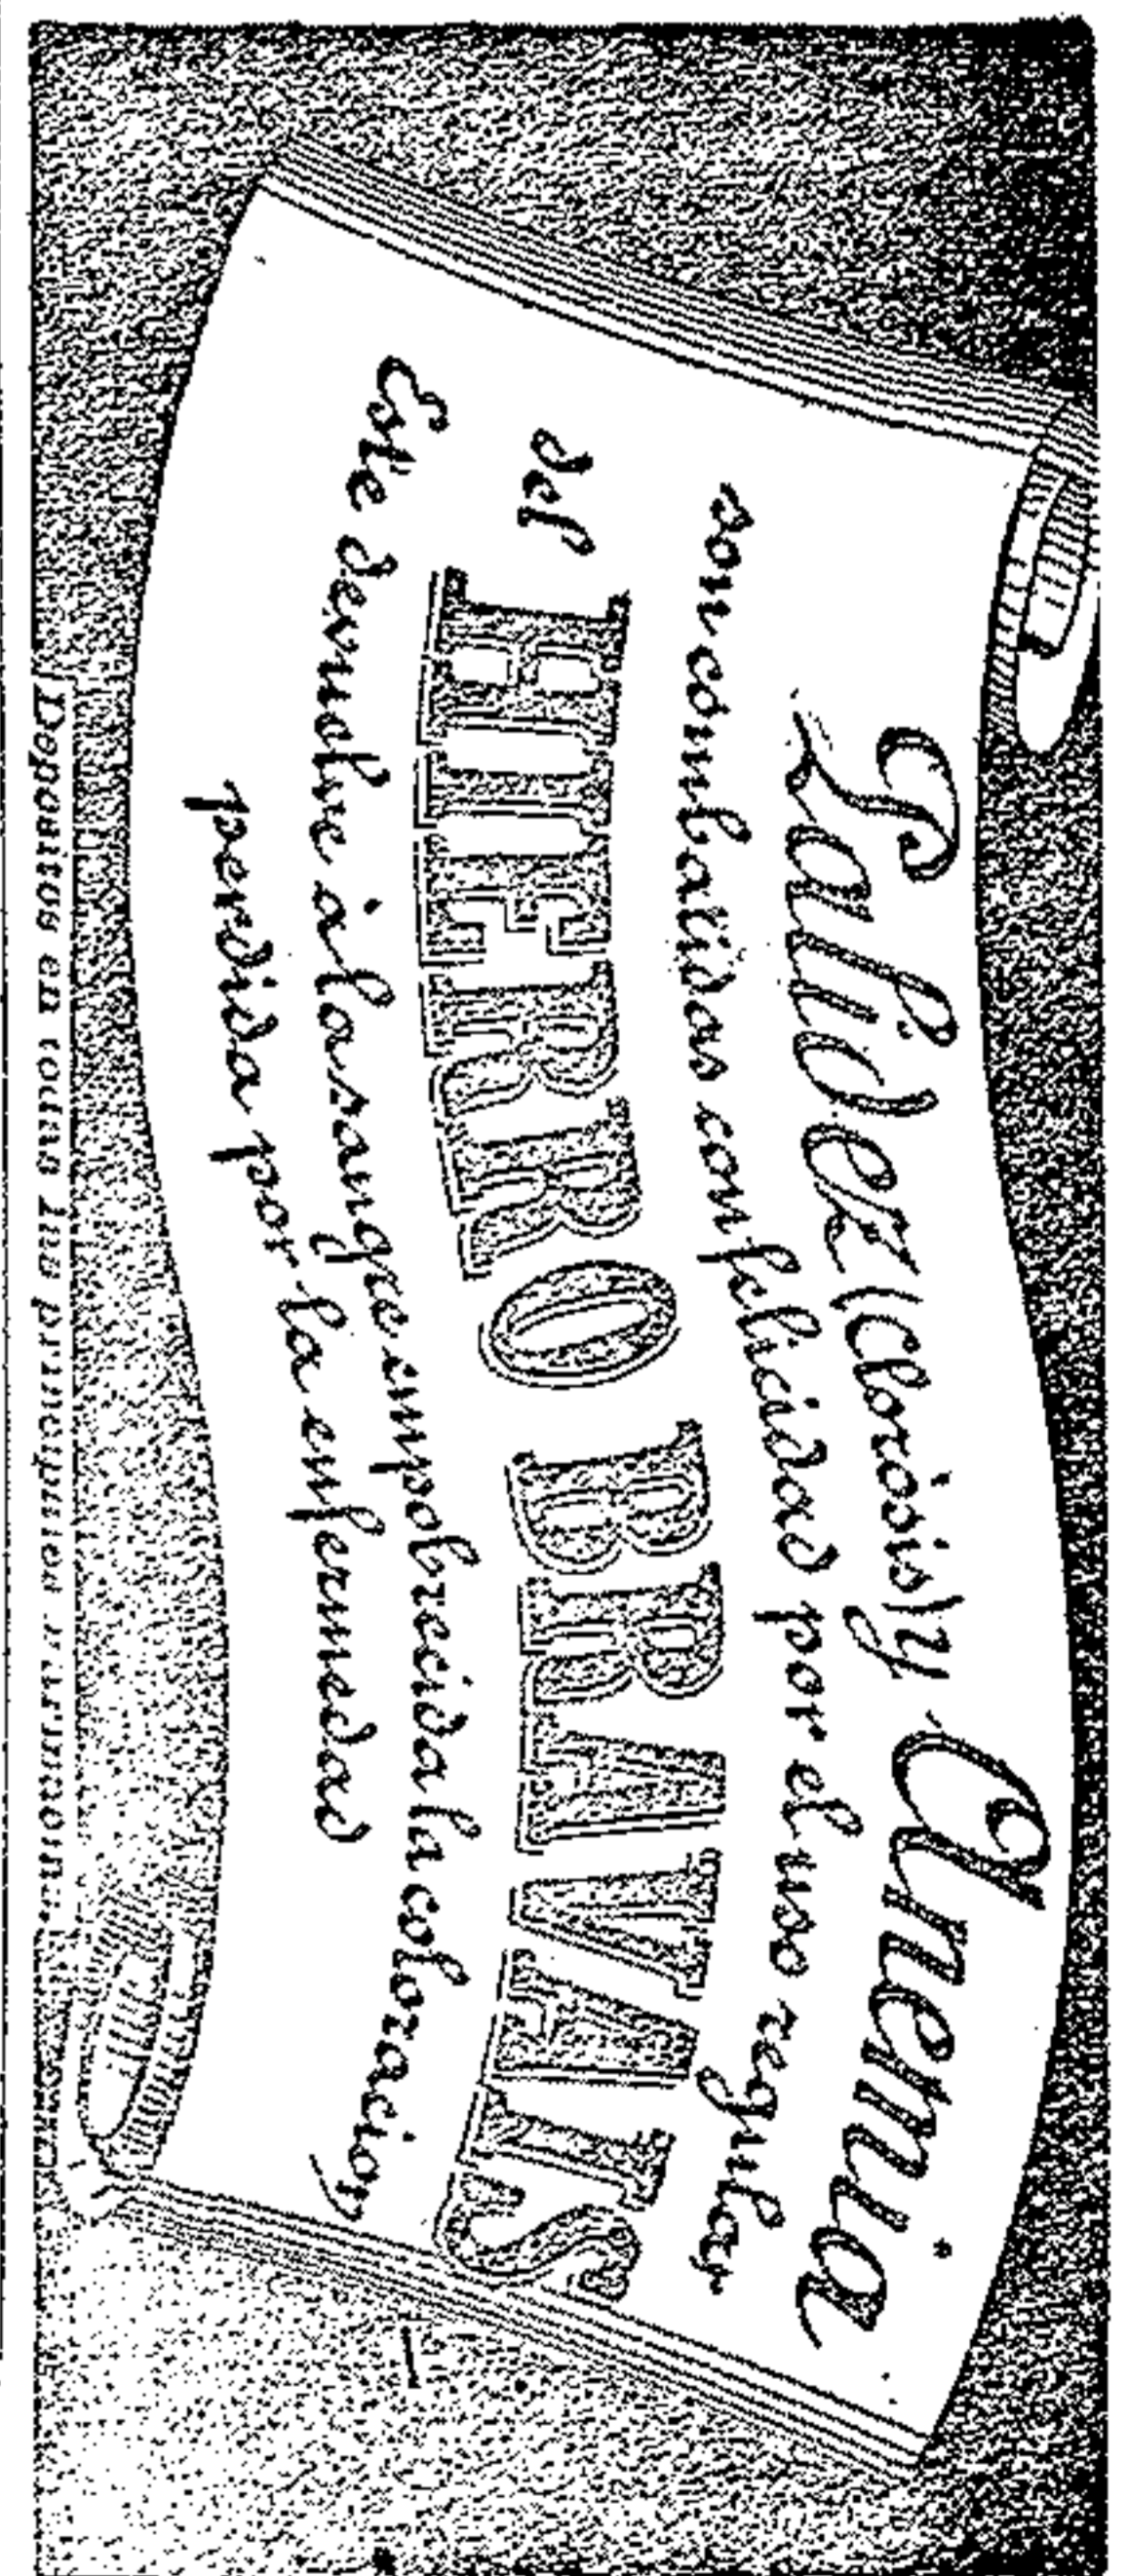 Palidez (Clorosis) y Anemia
son combatidas con felicidad por el uso regular
del HIERRO BRAVAIS
Este devuelve á la sangre empobrecida la coloracion
perdida por la enfermedad
Depositos en todas las principales Farmacias